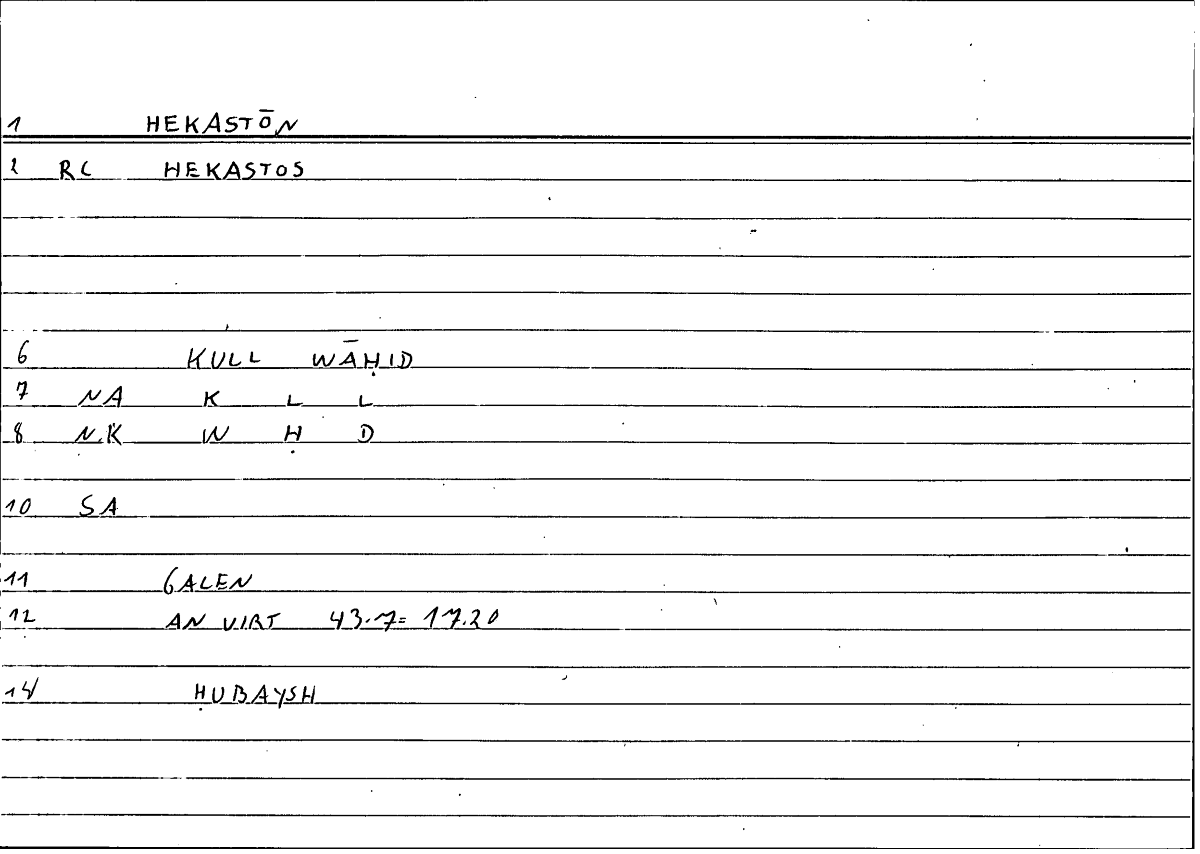 1 HEKASTŌN
2 RC HEKASTOS
6 KULL WĀḤID
7 NA K L L
8 NK W Ḥ D
10 SA
11 GALEN
12 AN VIRT 43.7= 17.20
14 ḤUBAYSH